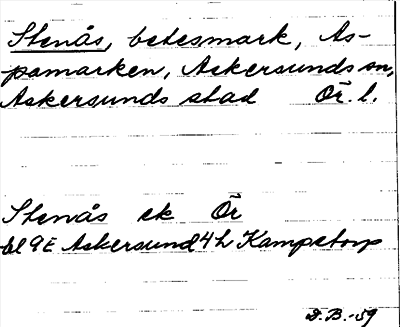 Stenås, betesmark, As-
pamarken, Askersunds sn,
Askersunds stad Ör. l.
Stenås ek Ör
bl 9E Askersund 4h Kampetorp
D. B. -59